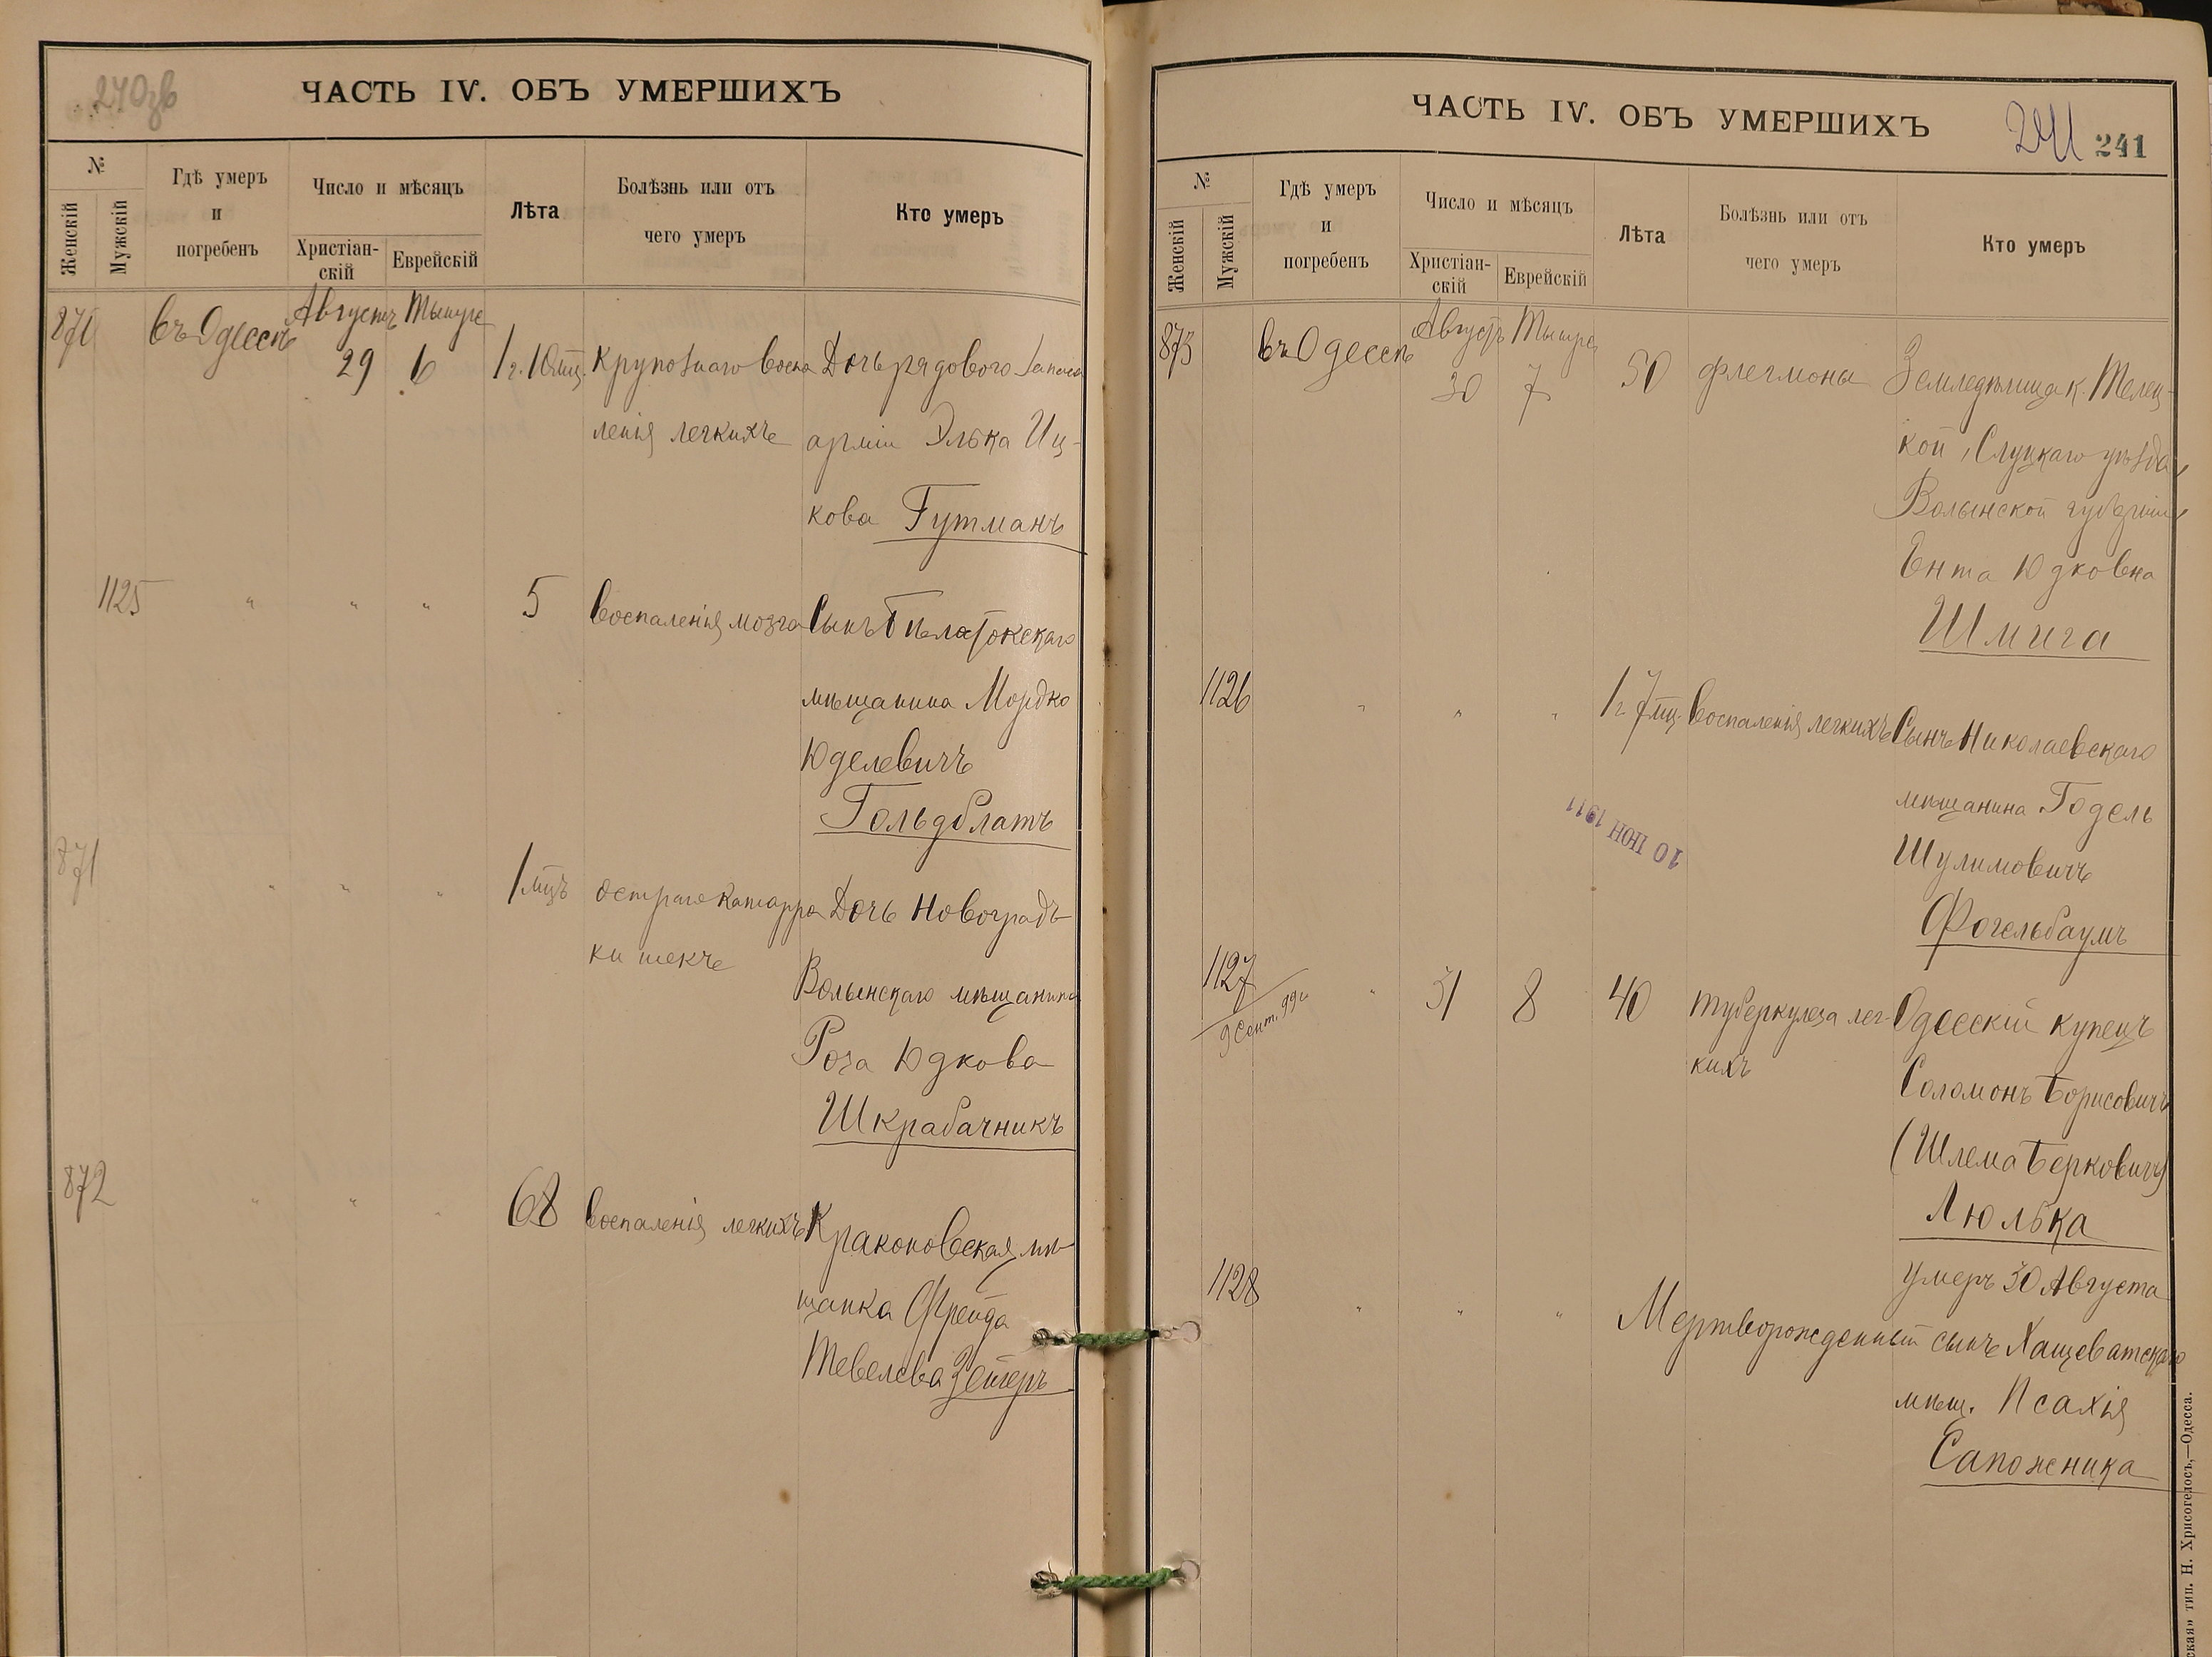 240зв
ЧАСТЬ IV. ОБЪ УМЕРШИХЪ
№
Женскій
Мужскій
Гдѣ умеръ
и
погребенъ
Число и мѣсяцъ
Христіан-
скій
Еврейскій
Лѣта
Болѣзнь или отъ
чего умеръ
Кто умеръ
870 въ Одессѣ Августъ Тышре
29 6 1 г. 10 мц. крупознаго воспа Дочь рядового запаса
ленія легкихъ арміи Элька Иц-
кова Гутманъ
1125 " " " 5 воспаленія мозга Сынъ Бѣлостокскаго
мѣщанина Мордко
Юделевичъ
Гольдблатъ
871 " " " 1 мцъ остраго катарра Дочь Новоградъ
кишекъ Волынскаго мѣщанина
Роза Юдкова
Шкрабачникъ
872 " " " 68 воспаленія легкихъ мѣ-
щанка Фрейда
Тевелева Зейгеръ
ЧАСТЬ IV. ОБЪ УМЕРШИХЪ
241 241
№
Женскій
Мужскій
Гдѣ умеръ
и
погребенъ
Число и мѣсяцъ
Христіан-
скій
Еврейскій
Лѣта
Болѣзнь или отъ
чего умеръ
Кто умеръ
873 въ Одессѣ Августъ Тышре
30 7 50 флегмоны Земледѣлица к.
кой, Слуцкаго уѣзда,
Волынской губерніи,
Ента Юдковна
Шмига
1126 " " " 1 г. 7 мц. воспаленія легкихъ Сынъ Николаевскаго
мѣщанина Годель
Шулимовичъ
Фогельбаумъ
10 ІЮН 1911
1127 " 31 8 40 туберкулеза лег- Одесскій купецъ
9 Сент. 99 г.
кихъ Соломонъ Борисовичъ
(Шлема Берковичъ)
Люлька
умеръ 30 Августа
1128 " " " Мертворожденный сынъ Хащеватскаго
мѣщ. Псахія
Сапожника
ская» тип. Н. Хрисогелосъ,—Одесса.